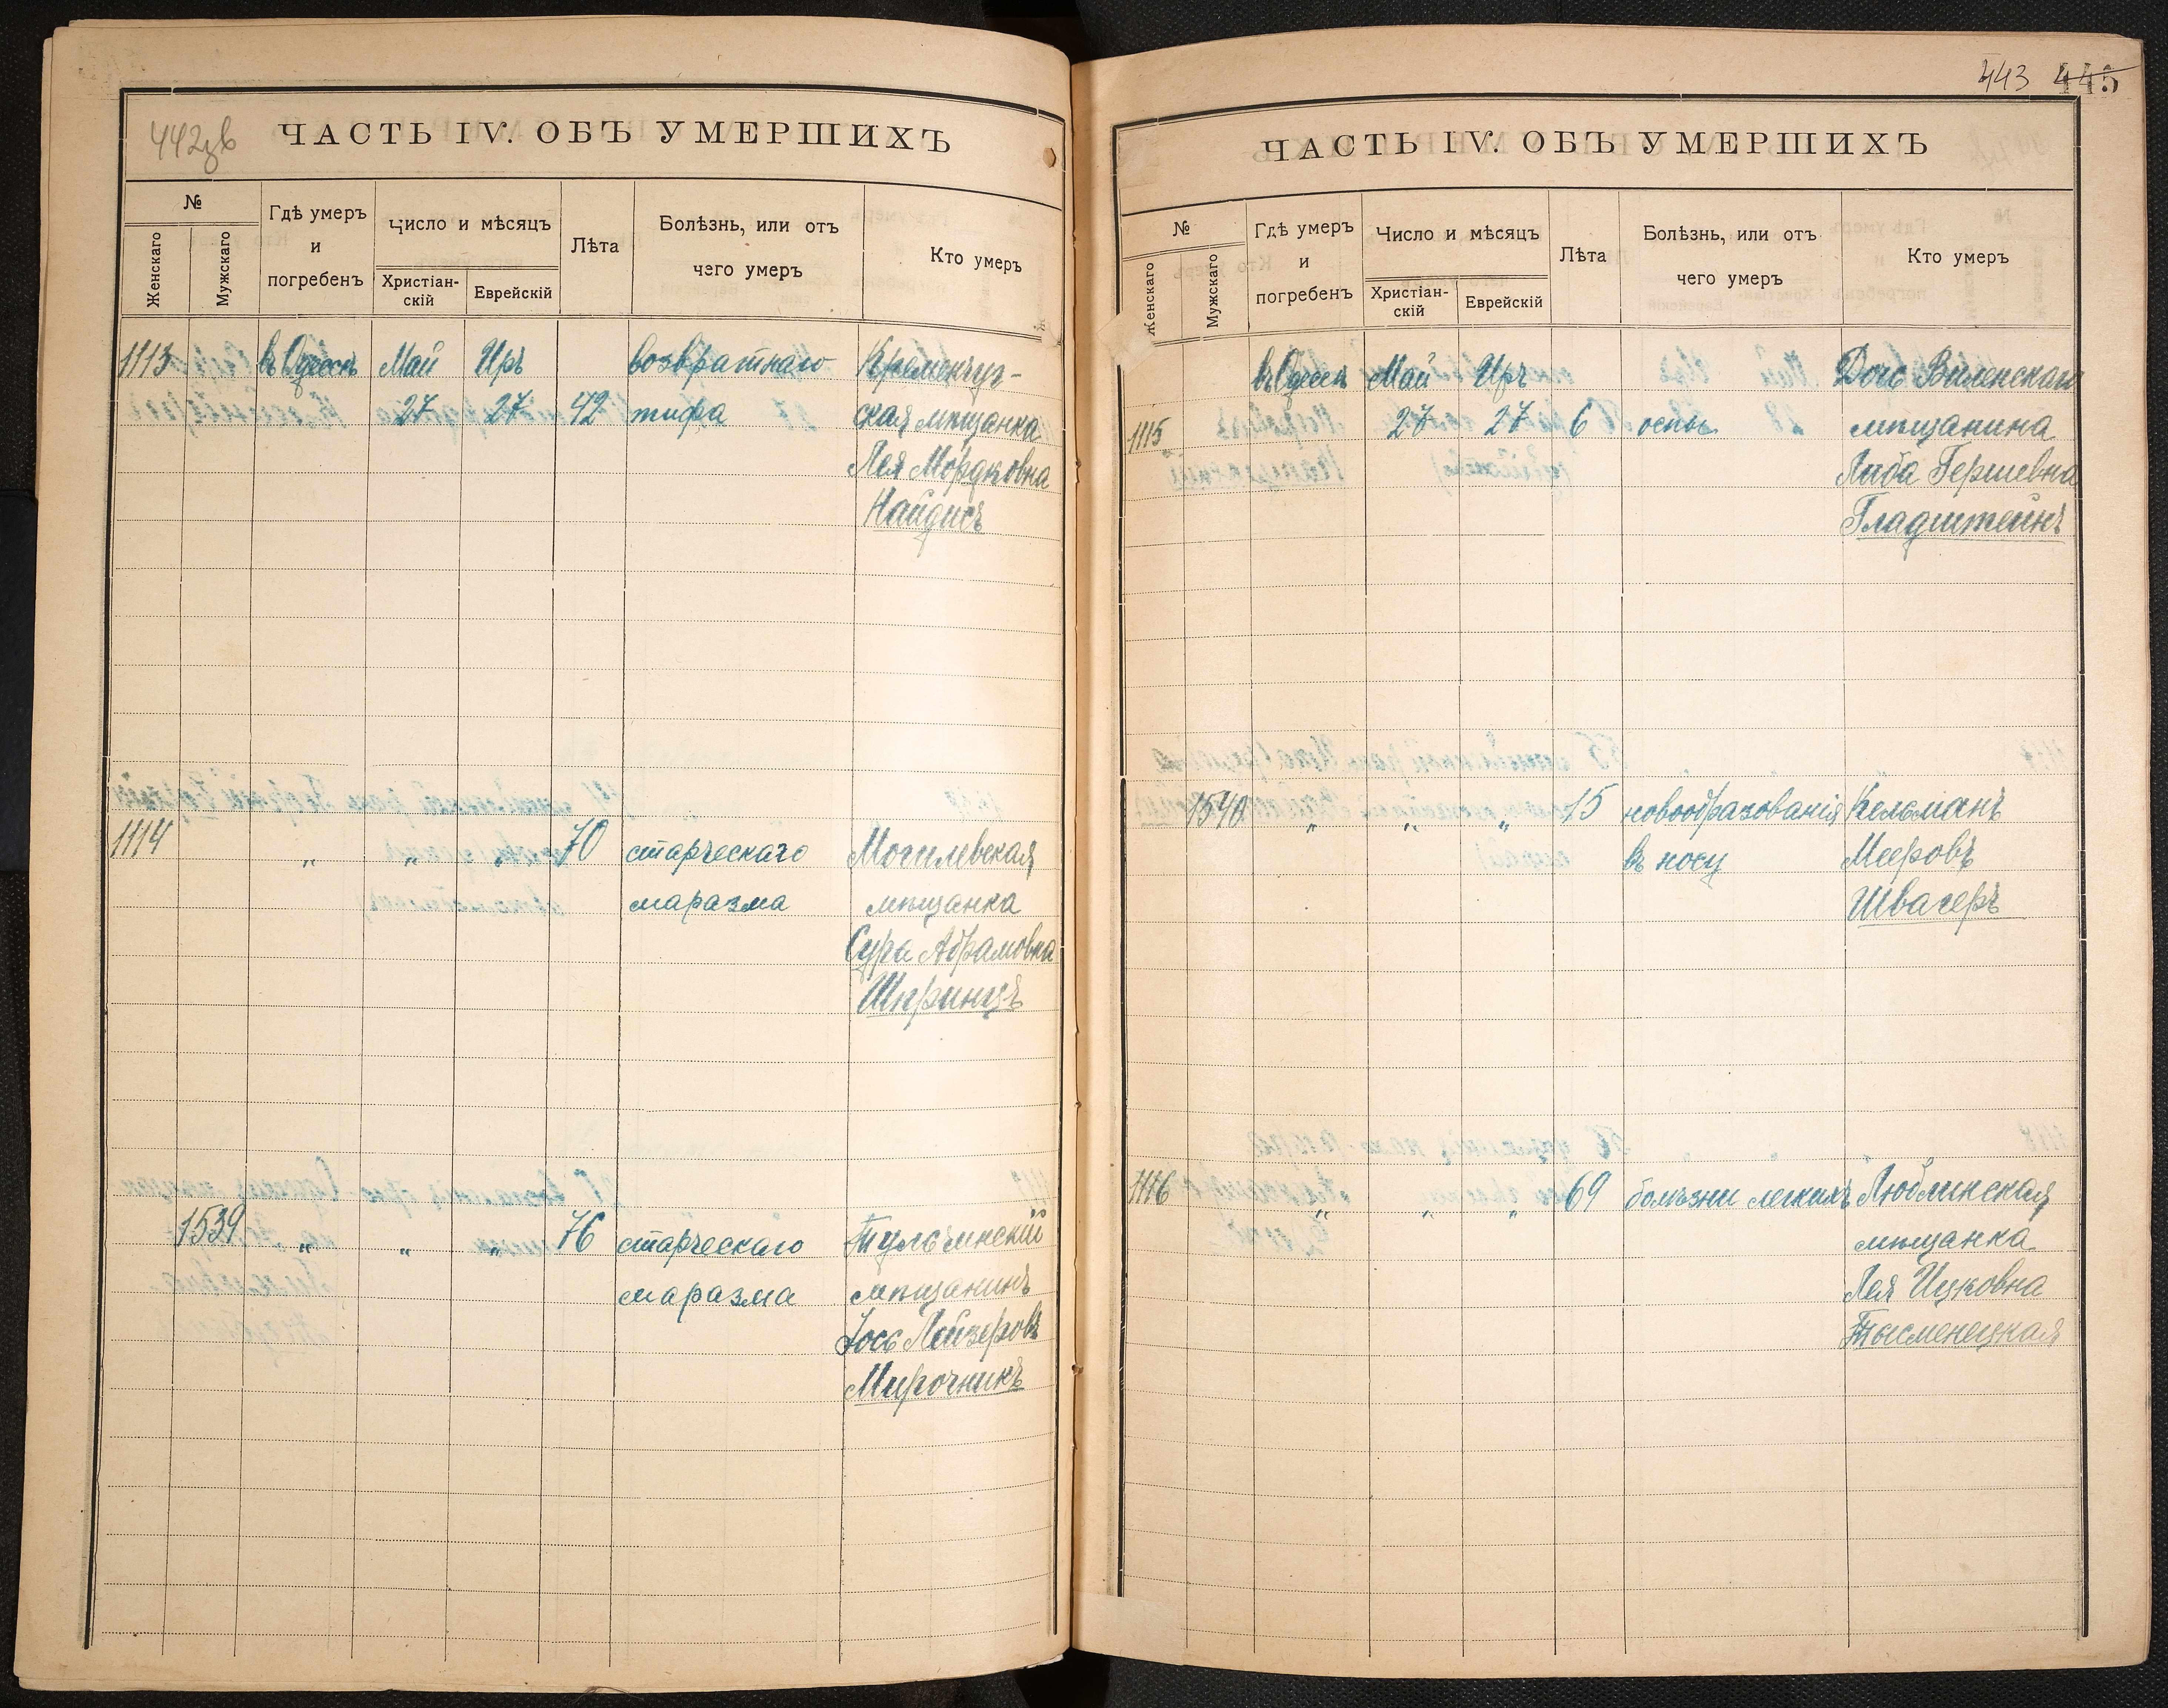 442зв
ЧАСТЬ IV. ОБЪ УМЕРШИХЪ
№
Женскаго
Мужскаго
Гдѣ умеръ
и
погребенъ
Число и мѣсяцъ
Христіан-
скій
Еврейскій
Лѣта
Болѣзнь, или отъ
чего умеръ
Кто умеръ
1113 въ Одессѣ Май Иръ возвратнаго Кременчуг-
27 27 42 тифа ская мѣщанка
Лея Мордковна
Найдисъ
1114 „ „ „ 70 старческаго Могилевская
маразма мѣщанка
Сура Абрамовна
Шпринцъ
1539 „ „ „ 76 старческаго Тульчинскій
маразма мѣщанинъ
Іось Лейзеровъ
Мирочникъ
443 445
ЧАСТЬ IV. ОБЪ УМЕРШИХЪ
№
Женскаго
Мужскаго
Гдѣ умеръ
и
погребенъ
Число и мѣсяцъ
Христіан-
скій
Еврейскій
Лѣта
Болѣзнь, или отъ
чего умеръ
Кто умеръ
въ Одессѣ Май Иръ Дочь Виленскаго
1115 27 27 6 оспы мѣщанина
Либа Гершевна
Гладштейнъ
1540 „ „ „ 15 новообразованія Кельманъ
въ носу Мееровъ
Швагеръ
1116 „ „ „ 69 болѣзни легкихъ Люблинская
мѣщанка
Лея Ицковна
Тысменецкая